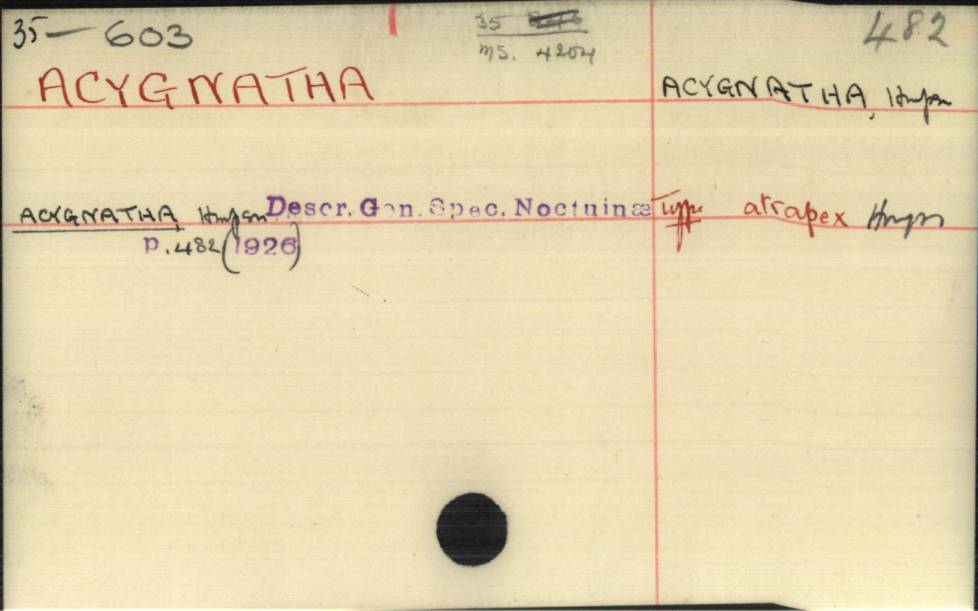 35 — 603
35
MS. 4204
482
ACYGNATHA
ACYGNATHA, Hmpsn
ACYGNATHA, Hmpsn Descr. Gen. Spec. Noctuinæ
p. 482 (1926)
Type atrapex Hmpsn